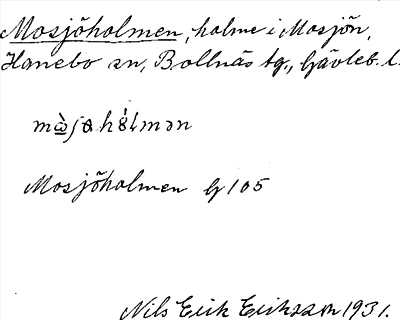 Mosjöholmen, holme i Mosjön,
Hanebo sn, Bollnäs tg., Gävleb. l.
Mosjöholmen G 105
Nils Erik Eriksson 1931.